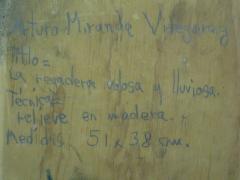 Arturo Miranda Videgaray
Titlo=
La regadera volosa y lluviosa.
Técnica=
relieve en madera.
Medidas. 51 x 38 cm.